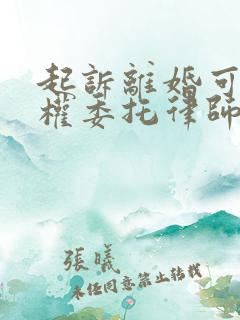 起訴離婚可
權委托律師
張曦
未任同意禁止转载